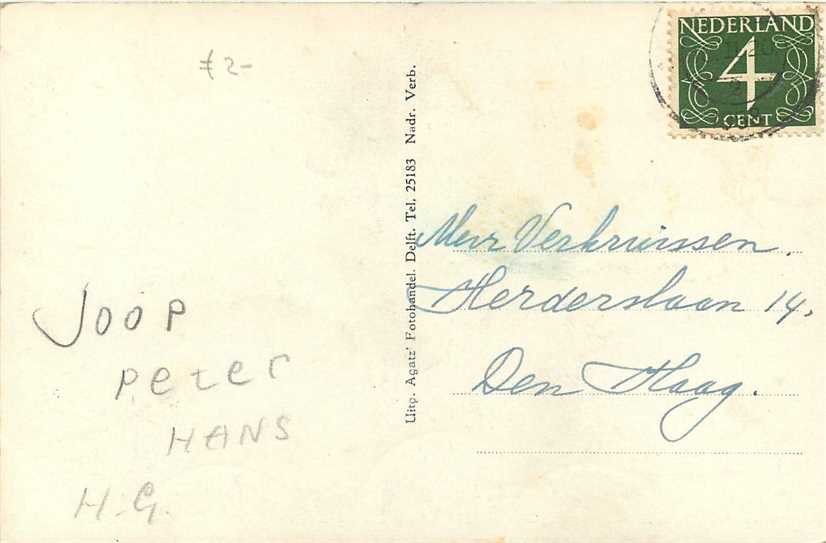 NEDERLAND
4
CENT
Uitg. Agatz' Fotohandel. Delft. Tel. 25183 Nadr. Verb.
Mevr Verkruissen.
Herderslaan 14.
Den Haag.
JOOP
Peter
HANS
H.G.